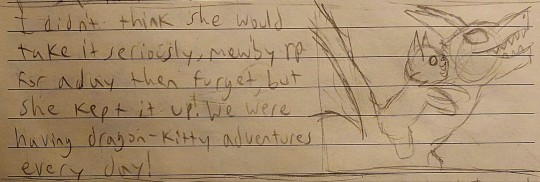 I didn't think she would
take it seriously, mewby rp
for a day then forget, but
she kept it up! We were
having dragon-kitty adventures
every day!